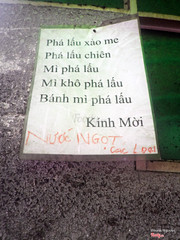 Phá lấu xào me
Phá lấu chiên
Mì phá lấu
Mì khô phá lấu
Bánh mì phá lấu
Kính Mời
NƯỚC NGỌT
Các Loại